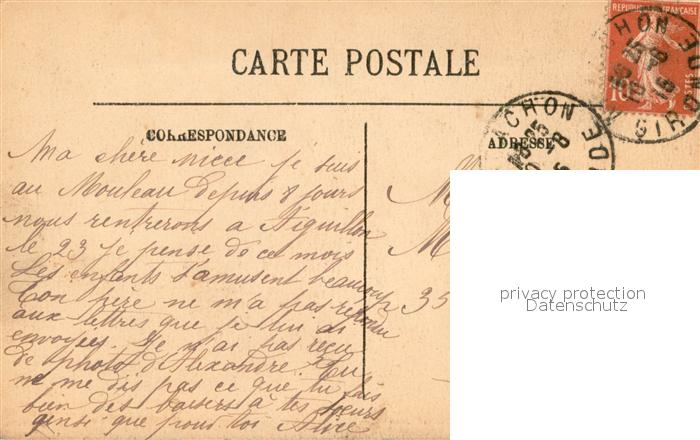 REPUBLIQUE FRANÇAISE
10
CHON
GIRONDE
CARTE POSTALE
CORRESPONDANCE
ADRESSE
ACHON
Ma chère niece je suis
au Mouleau depuis 8 jours
nous rentrerons a Aiguillon
le 23 je pense de ce mois
Les enfants s'amusent beaucoup
Ton père ne m'a pas repondu
aux lettres que je lui ai
envoyées. Je n'ai pas reçu
de photo d'Alexandre. Tu
ne me dis pas ce que tu fais
bien des baisers à tes sœurs
ainsi que pour toi Alice
M
M
35
privacy protection
Datenschutz